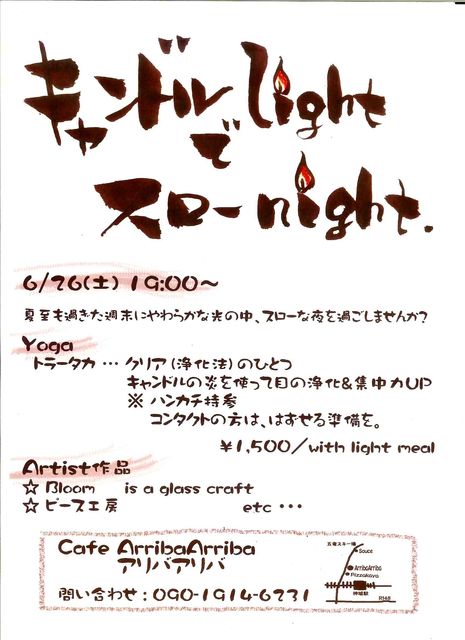 キャンドルlight
で
スローnight.
6/26(土) 19:00～
夏至も過ぎた週末にやわらかな光の中、スローな夜を過ごしませんか？
Yoga
トラータカ … クリア（浄化法）のひとつ
キャンドルの炎を使って目の浄化＆集中力UP
※ ハンカチ持参
コンタクトの方は、はずせる準備を。
¥1,500/with light meal
Artist作品
☆ Bloom is a glass craft
☆ ビーズ工房 etc …
Cafe ArribaArriba
アリバアリバ
問い合わせ：090-1914-6231
五竜スキー場
Souce
ArribaArriba
Pizzakaya
神城駅
R148